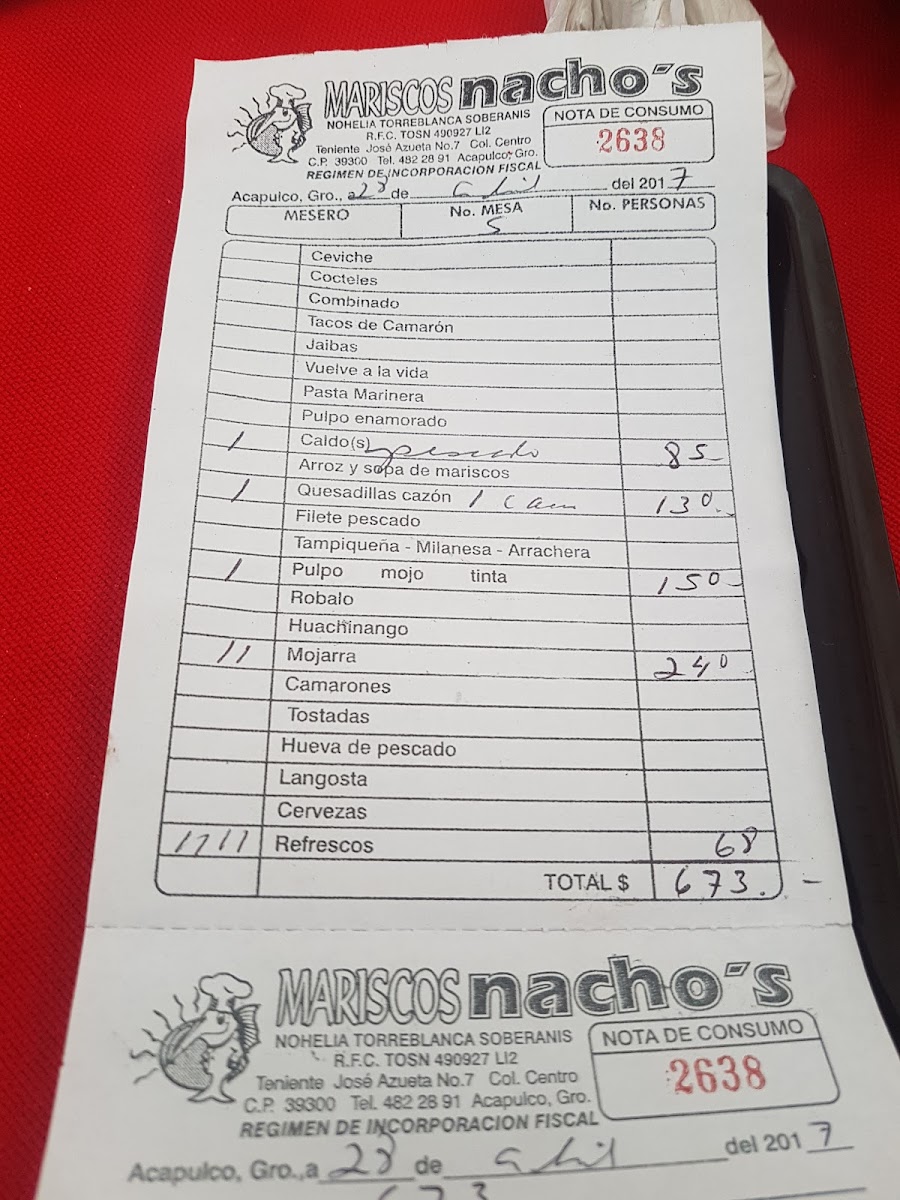 MARISCOS nacho's
NOHELIA TORREBLANCA SOBERANIS
R.F.C. TOSN 490927 LI2
Teniente José Azueta No.7 Col. Centro
C.P. 39300 Tel. 482 28 91 Acapulco, Gro.
REGIMEN DE INCORPORACION FISCAL
NOTA DE CONSUMO
2638
Acapulco, Gro., a 23 de abril del 2017
MESERO No. MESA No. PERSONAS
5
Ceviche
Cocteles
Combinado
Tacos de Camarón
Jaibas
Vuelve a la vida
Pasta Marinera
Pulpo enamorado
1 Caldo(s) pescado 85-
Arroz y sopa de mariscos
1 Quesadillas cazón 1 cam 130.-
Filete pescado
Tampiqueña - Milanesa - Arrachera
1 Pulpo mojo tinta 150-
Robalo
Huachinango
11 Mojarra 240
Camarones
Tostadas
Hueva de pescado
Langosta
Cervezas
1111 Refrescos 68
TOTAL $ 673. -
MARISCOS nacho's
NOHELIA TORREBLANCA SOBERANIS
R.F.C. TOSN 490927 LI2
Teniente José Azueta No.7 Col. Centro
C.P. 39300 Tel. 482 28 91 Acapulco, Gro.
REGIMEN DE INCORPORACION FISCAL
NOTA DE CONSUMO
2638
Acapulco, Gro.,a 23 de abril del 2017
673